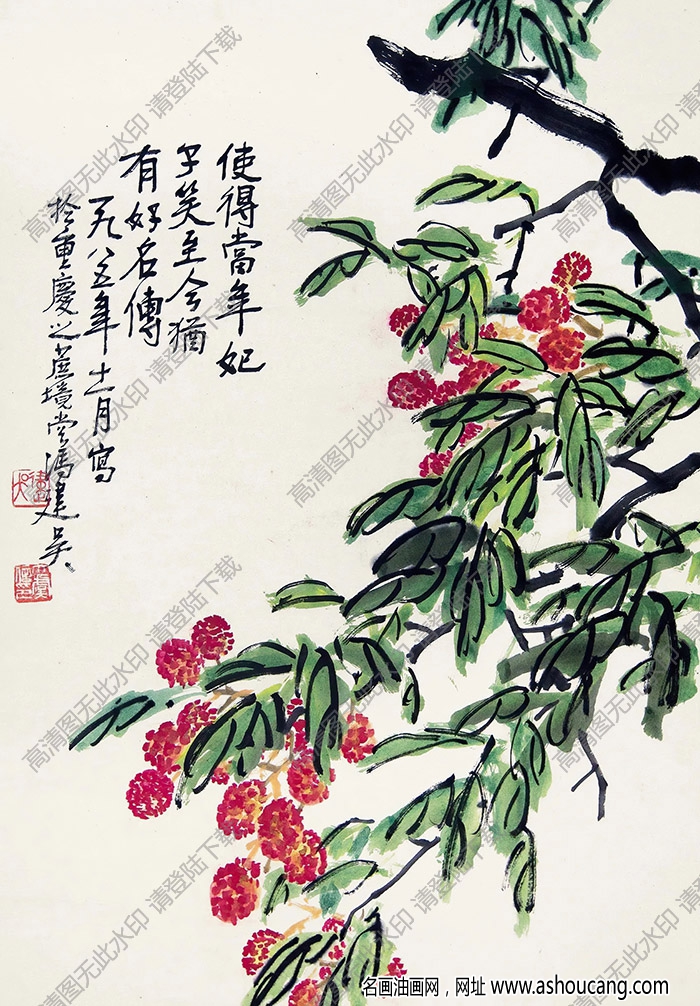 使得當年妃
子笑至今猶
有好名傳
一九八五年十一月寫
於重慶之蔗境堂馮建吳
高清图无此水印 请登陆下载
名画油画网，网址 www.ashoucang.com